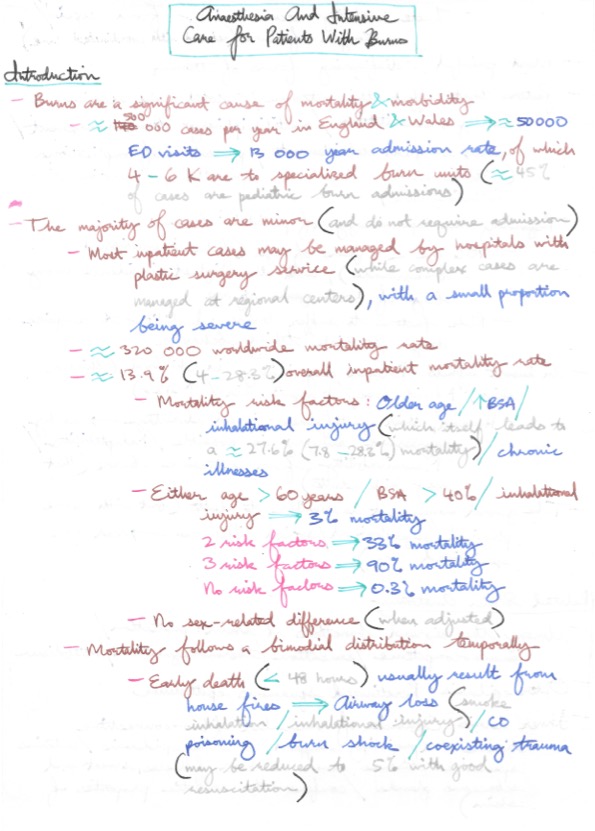 Anaesthesia And Intensive
Care for Patients With Burns
Introduction
- Burns are a significant cause of mortality & morbidity
- ≈ 500 000 cases per year in England & Wales ⇒ ≈ 50000
ED visits ⇒ 13 000 year admission rate, of which
4 - 6 K are to specialized burn units (≈ 45%
of cases are pediatric burn admissions)
- The majority of cases are minor (and do not require admission)
- Most inpatient cases may be managed by hospitals with
plastic surgery service (while complex cases are
managed at regional centers), with a small proportion
being severe
- ≈ 320 000 worldwide mortality rate
- ≈ 13.9% (4 - 28.3%) overall inpatient mortality rate
- Mortality risk factors: Older age / ↑BSA /
inhalational injury (which itself leads to
a ≈ 27.6% (7.8 - 28.3%) mortality) / chronic
illnesses
- Either age > 60 years / BSA > 40% / inhalational
injury ⇒ 3% mortality
2 risk factors ⇒ 33% mortality
3 risk factors ⇒ 90% mortality
No risk factors ⇒ 0.3% mortality
- No sex-related difference (when adjusted)
- Mortality follows a bimodial distribution temporally
- Early death (< 48 hours) usually result from
house fires ⇒ Airway loss (smoke
inhalation / inhalational injury) / CO
poisoning / burn shock / coexisting trauma
(may be reduced to 5% with good
resuscitation)